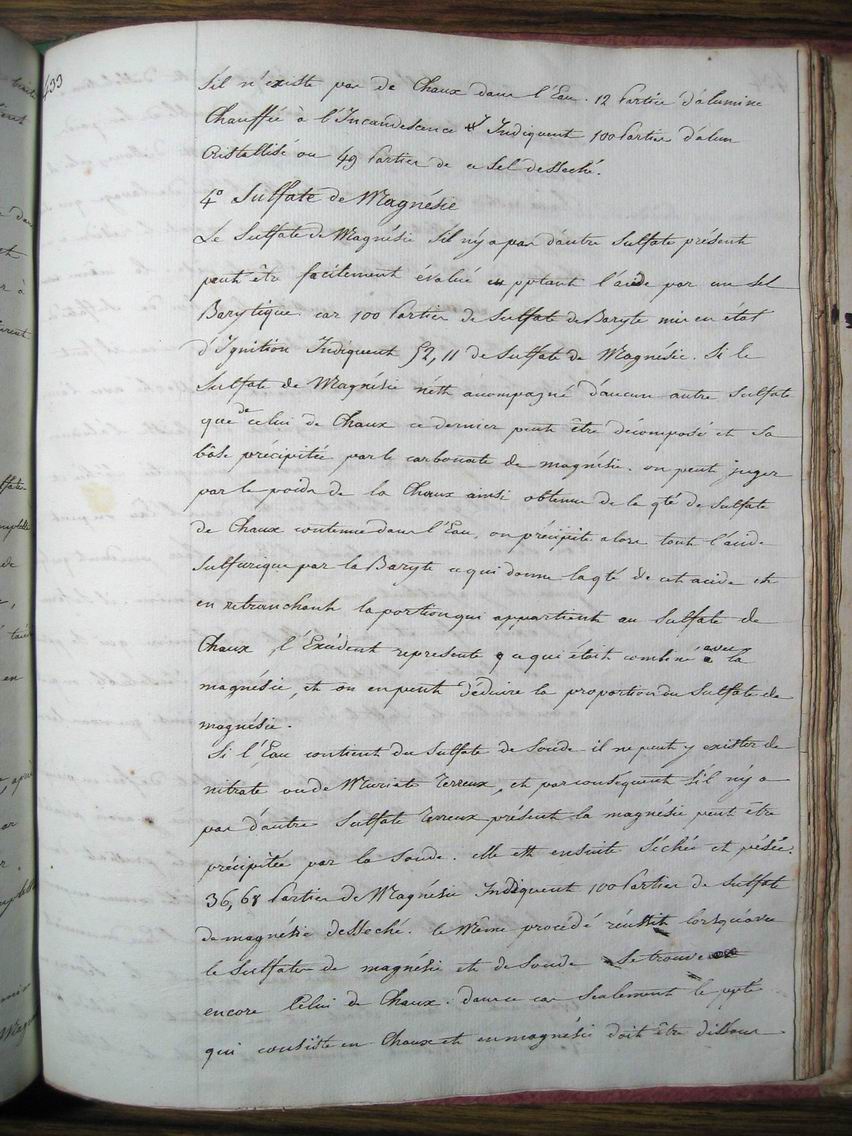 433
S'il n'existe pas de Chaux dans l'Eau. 12 Parties d'alumine
Chauffée à l'Incandescence Indiquent 100 Parties d'alun
Cristallisé ou 49 Parties de ce Sel desseché.
4° Sulfate de Magnésie
Le Sulfate de Magnésie S'il n'y a pas d'autre Sulfate présent
peut être facilement évalué en pptant l'acide par un Sel
Barytique. car 100 Parties de Sulfate de Baryte mis en état
d'Ignition Indiquent 52,11 de Sulfate de Magnésie. Si le
Sulfate de Magnésie n'est acompagné d'aucun autre Sulfate
que de celui de Chaux ce dernier peut être décomposé et sa
bâse précipitée par le carbonate de magnésie. on peut juger
par le poids de la Chaux ainsi obtenue de la qté de Sulfate
de Chaux contenue dans l'Eau, on précipite alors tout l'acide
Sulfurique par la Baryte ce qui donne la qté de cet acide et
en retranchant la portion qui appartient au Sulfate de
Chaux, l'Exédent represente ce qui étoit combiné avec la
magnésie, et on en peut déduire la proportion du Sulfate de
magnésie.
Si l'Eau contient du Sulfate de Soude il ne peut y exister de
nitrate ou de Muriate Terreux, et par conséquent S'il n'y a
pas d'autre Sulfate Terreux présent la magnésie peut être
précipitée par la Soude. elle est ensuite Séchée et pésée.
36,68 Parties de Magnésie Indiquent 100 Parties de Sulfate
de magnésie desseché. le Même procédé réussit lorsqu'avec
le Sulfate de magnésie et de Soude Se trouve
encore Celui de Chaux. dans ce cas Seulement le ppté
qui consiste en Chaux et en magnésie doit être dissous